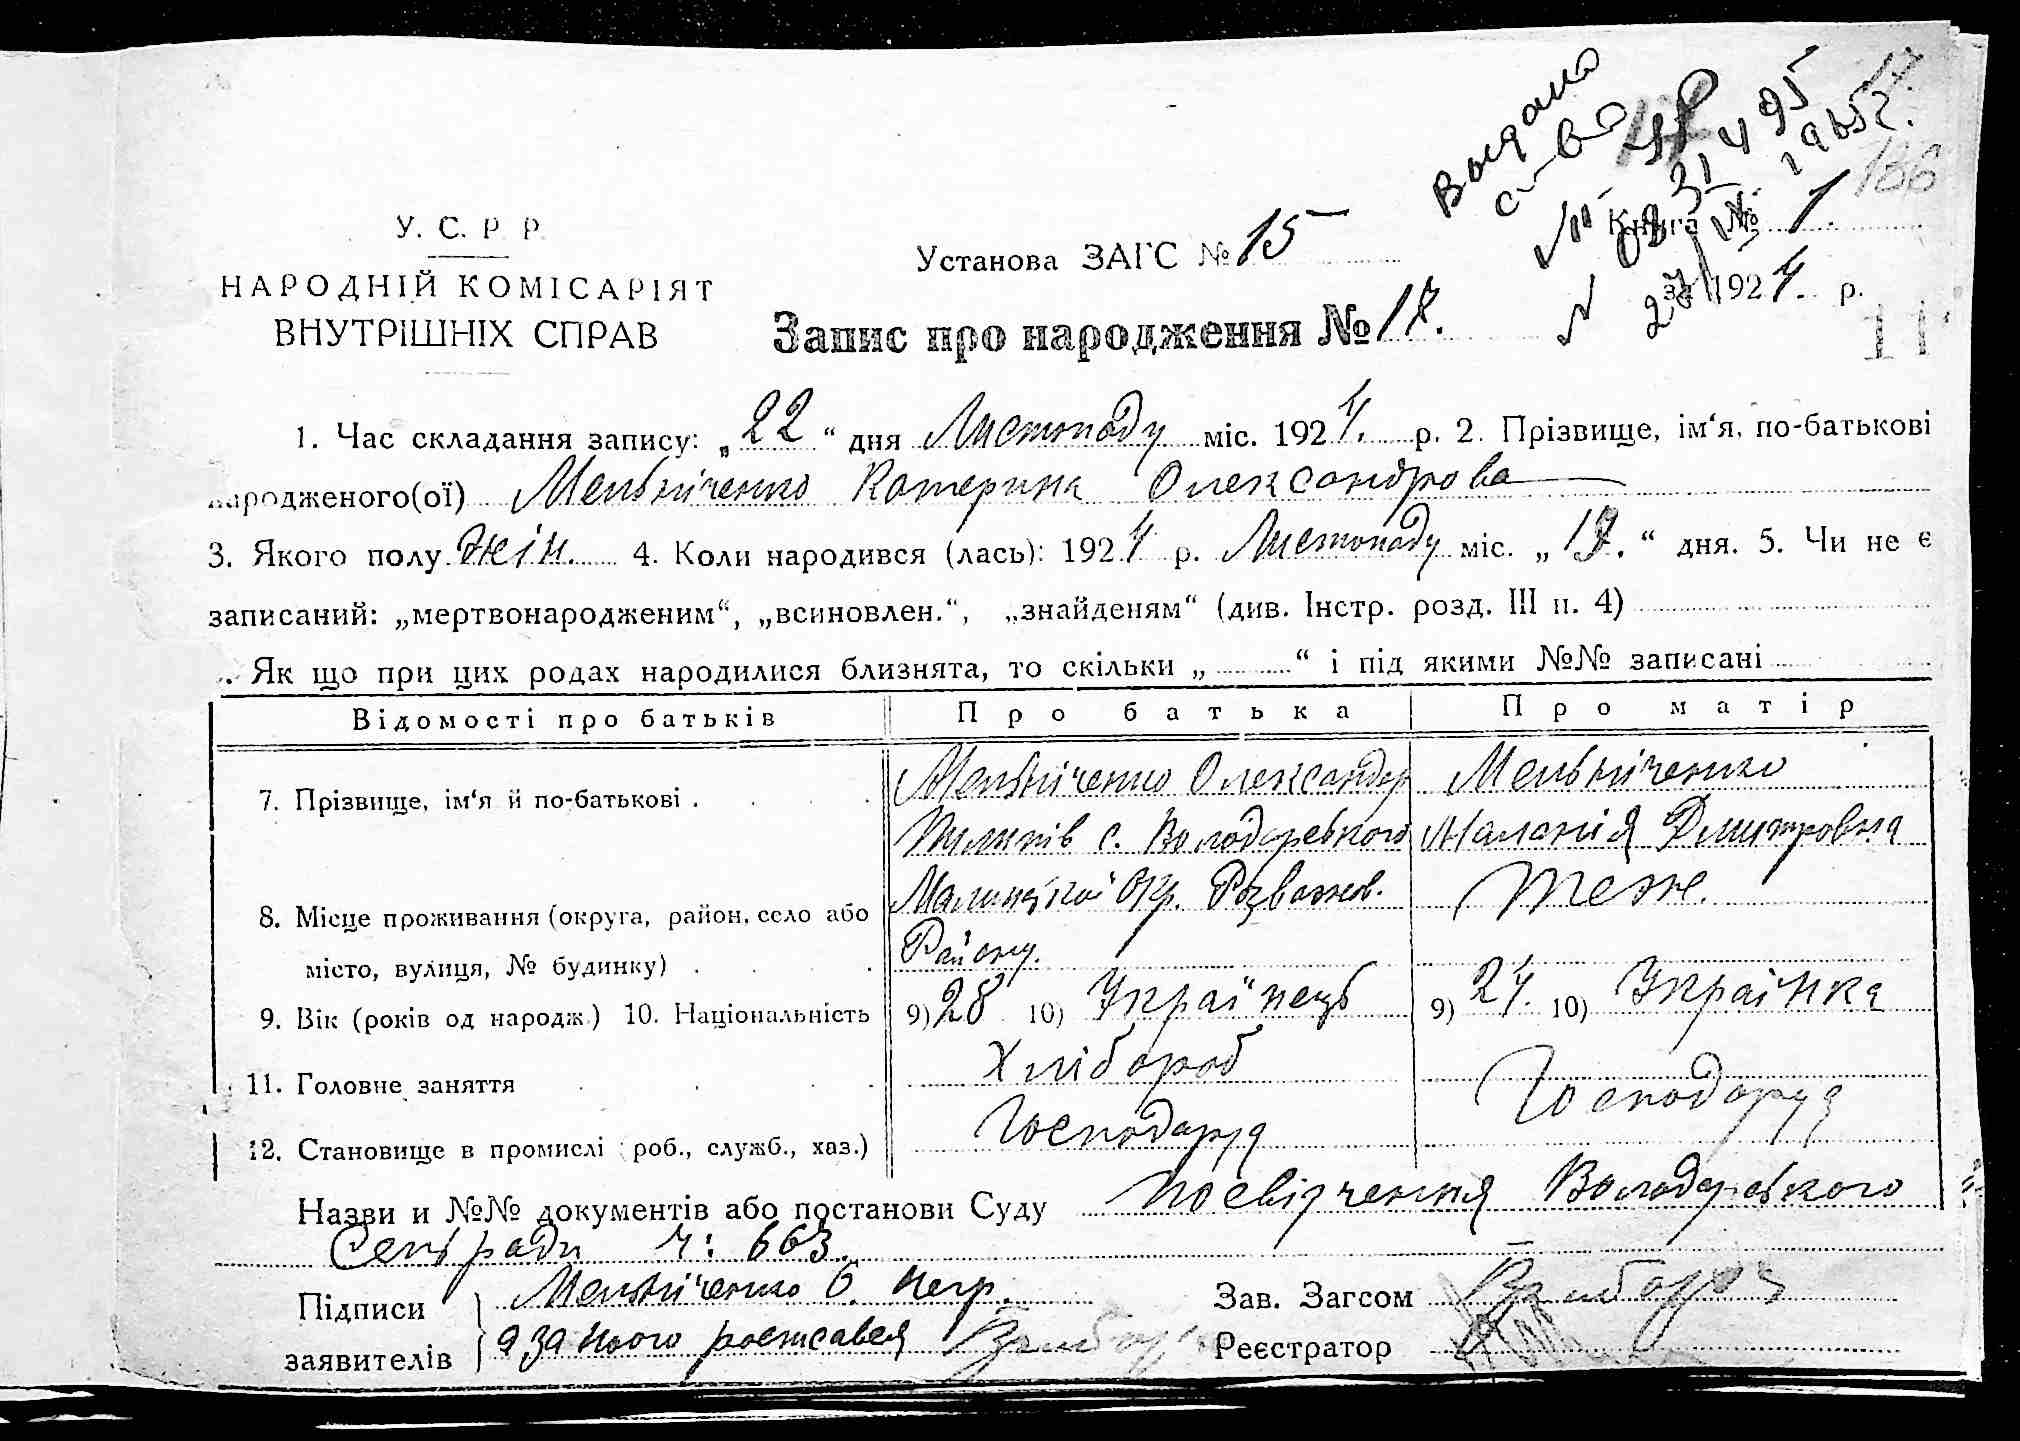 Выдано
с-во
№ 031495
27/IX 1965 г.
17.
166
У. С. Р. Р.
НАРОДНІЙ КОМІСАРІЯТ
ВНУТРІШНІХ СПРАВ
Установа ЗАГС № 15
Книга № 1
за 1924 р.
Запис про народження № 17.
11
1. Час складання запису: „22“ дня Листопаду міс. 1924. р. 2. Прізвище, ім‘я, по-батькові
народженого(ої) Мельніченко Катерина Олександрова
3. Якого полу жін. 4. Коли народився (лась): 1924 р. Листопаду міс. „17.“ дня. 5. Чи не є
записаний: „мертвонародженим“, „всиновлен.“, „знайденям“ (див. Інстр. розд. III п. 4)
Як що при цих родах народилися близнята, то скільки „ “ і під якими №№ записані
Відомості про батьків Про батька Про матір
7. Прізвище, ім‘я й по-батькові . Мельніченко Олександр Мельніченко
Пилипів с. Володарського Маланія Дмитровна
8. Місце проживання (округа, район, село або Малинської Окр. Розважов. Теж.
місто, вулиця, № будинку) . Району.
9. Вік (років од народж.) 10. Національність 9) 28 10) Українець 9) 24. 10) Українка
11. Головне заняття Хлібороб Господаруя
12. Становище в промислі (роб., служб., хаз.) Господаруя
Назви и №№ документів або постанови Суду посвідчення Володарського
Сельради ч: 663.
Підписи Мельніченко О. негр. Зав. Загсом
заявителів а за нього росписався Реєстратор